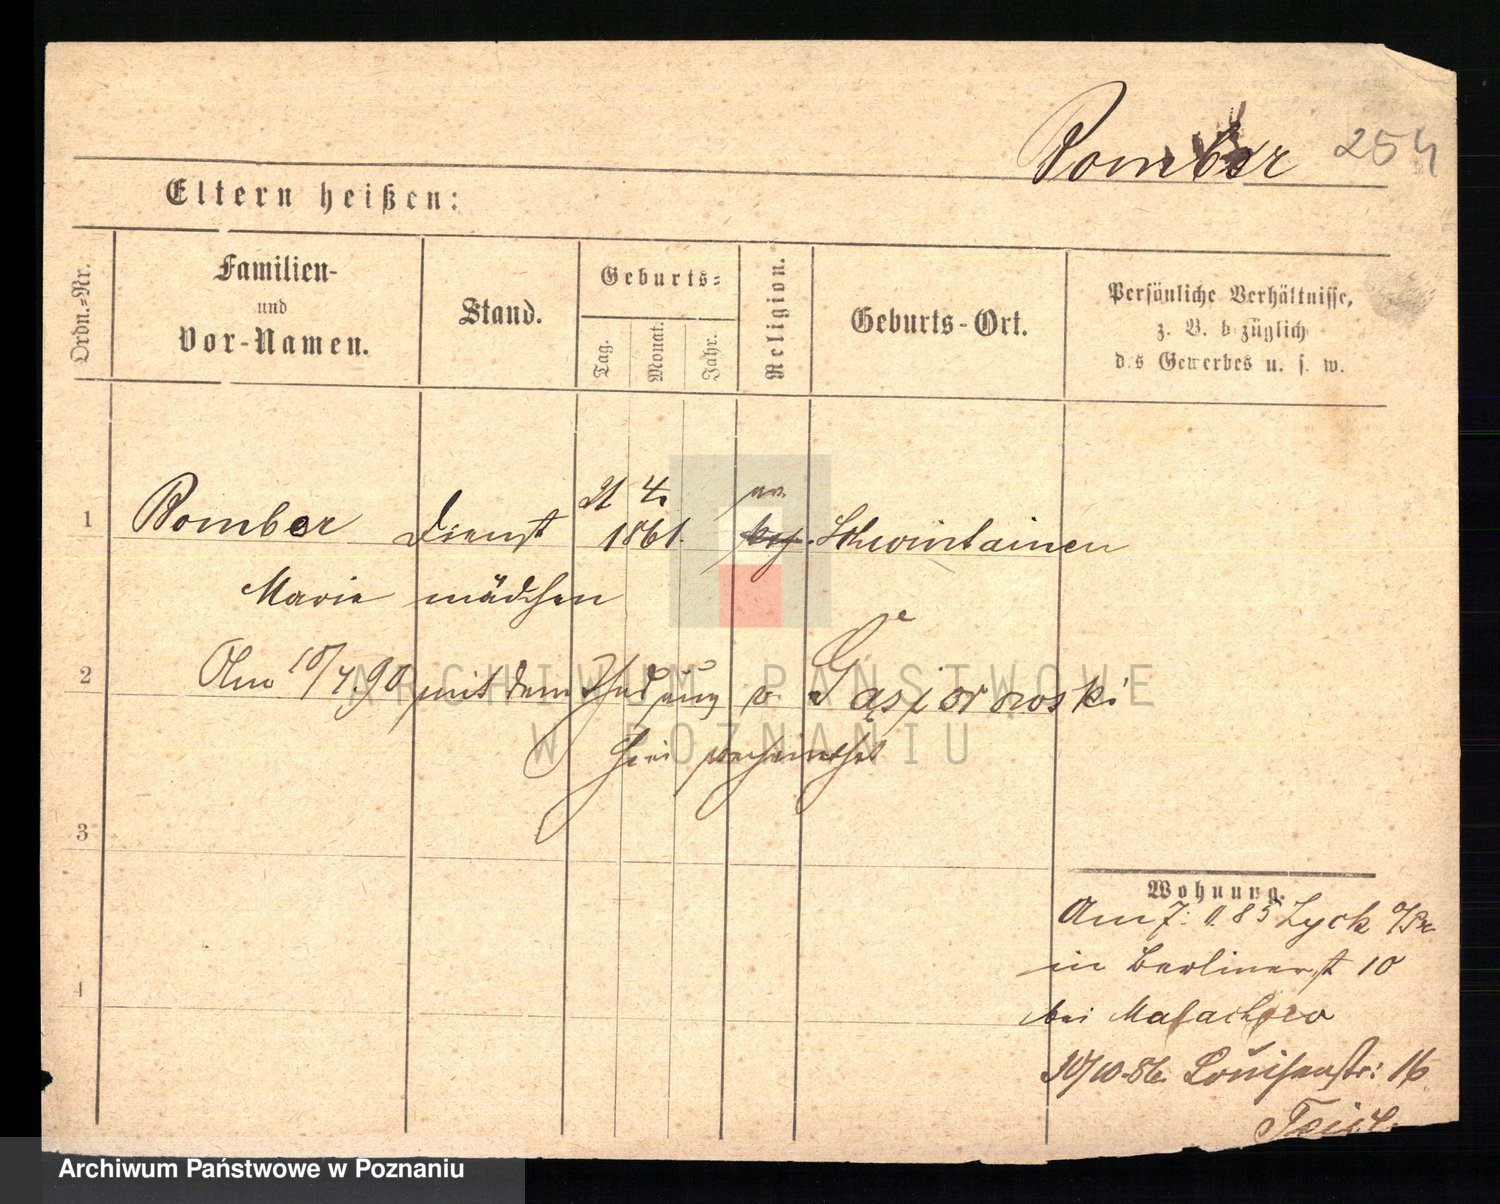 Romber 254
Eltern heißen:
Ordn.-Nr.
Familien-
und
Vor-Namen.
Stand.
Geburts-
Tag.
Monat.
Jahr.
Religion.
Geburts-Ort.
Persönliche Verhältnisse,
z. B. bezüglich
des Gewerbes u. s. w.
21 4. ev.
1 Romber Dienst 1861. Schwintainen
Marie mädchen
2 Am 10/4.90 mit dem v. Gąsiorowski
3
4
Wohnung.
Am 7. 11. 85 Lyck o/Pr.
in Berlinerst 10
bei
30/10.86. Louisenstr: 16
ARCHIWUM PAŃSTWOWE
W POZNANIU
Archiwum Państwowe w Poznaniu